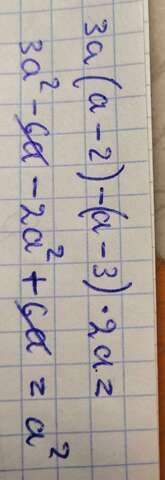 3a(a-2)-(a-3)·2a=
3a²-6a-2a²+6a=a²